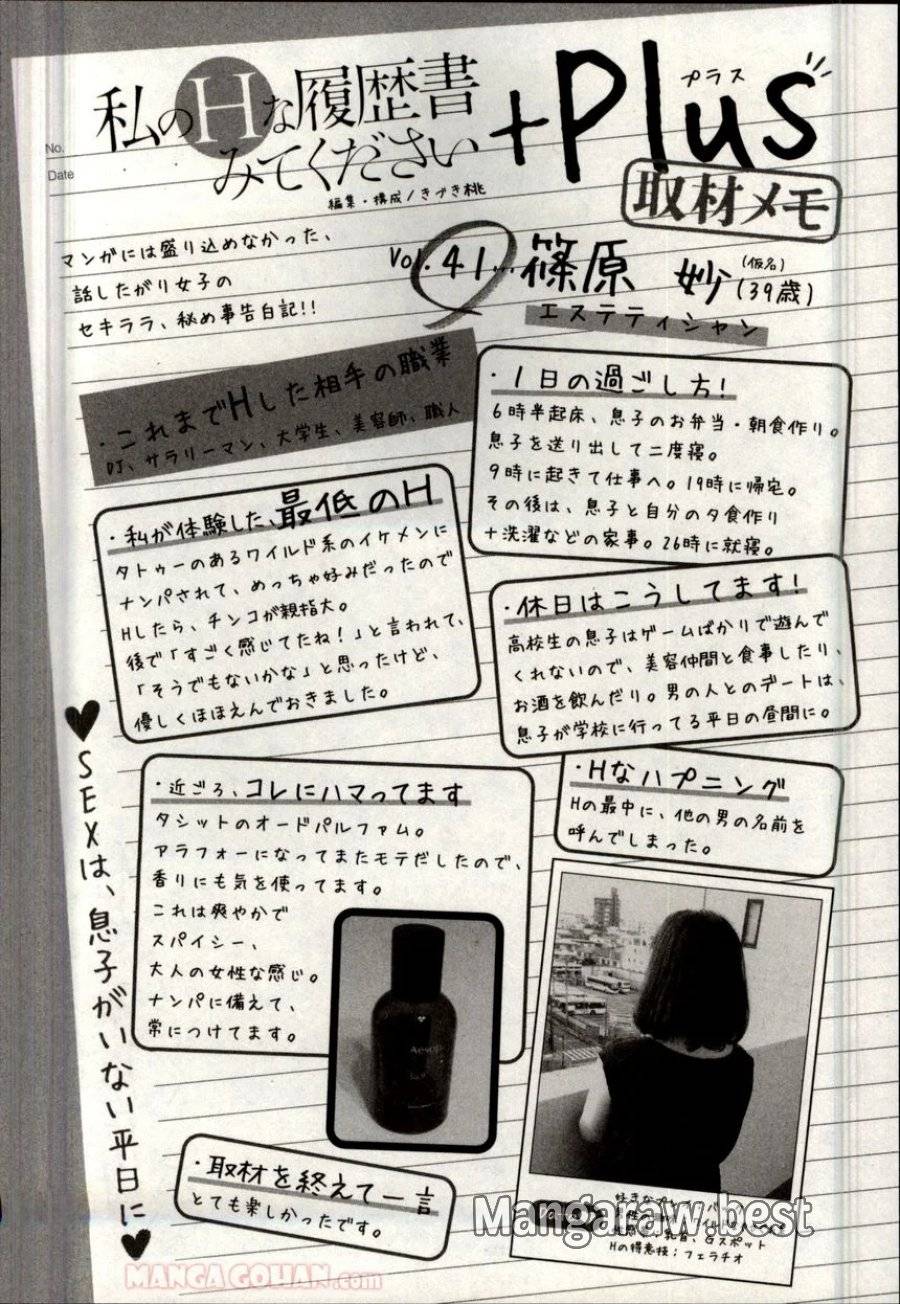 No.
Date
私のHな履歴書
みてください
+Plus
プラス
編集・構成/きづき桃
取材メモ
マンガには盛り込めなかった、
話したがり女子の
セキララ、秘め事告白記!!
Vol.41…篠原 妙(仮名)(39歳)
エステティシャン
・これまでHした相手の職業
DJ、サラリーマン、大学生、美容師、職人
・1日の過ごし方!
6時半起床、息子のお弁当・朝食作り。
息子を送り出して二度寝。
9時に起きて仕事へ。19時に帰宅。
その後は、息子と自分の夕食作り
+洗濯などの家事。26時に就寝。
・私が体験した、最低のH
タトゥーのあるワイルド系のイケメンに
ナンパされて、めっちゃ好みだったので
Hしたら、チンコが親指大。
後で「すごく感じてたね!」と言われて、
「そうでもないかな」と思ったけど、
優しくほほえんでおきました。
・休日はこうしてます!
高校生の息子はゲームばかりで遊んで
くれないので、美容仲間と食事したり、
お酒を飲んだり。男の人とのデートは、
息子が学校に行ってる平日の昼間に。
・近ごろ、コレにハマってます
タシットのオードパルファム。
アラフォーになってまたモテだしたので、
香りにも気を使ってます。
これは爽やかで
スパイシー、
大人の女性な感じ。
ナンパに備えて、
常につけてます。
Aesop
・Hなハプニング
Hの最中に、他の男の名前を
呼んでしまった。
♥SEXは、息子がいない平日に♥
・取材を終えて一言
とても楽しかったです。
好きなプレイ
乳首、Gスポット
Hの得意技;フェラチオ
Mangaraw.best
MANGAGOHAN.com